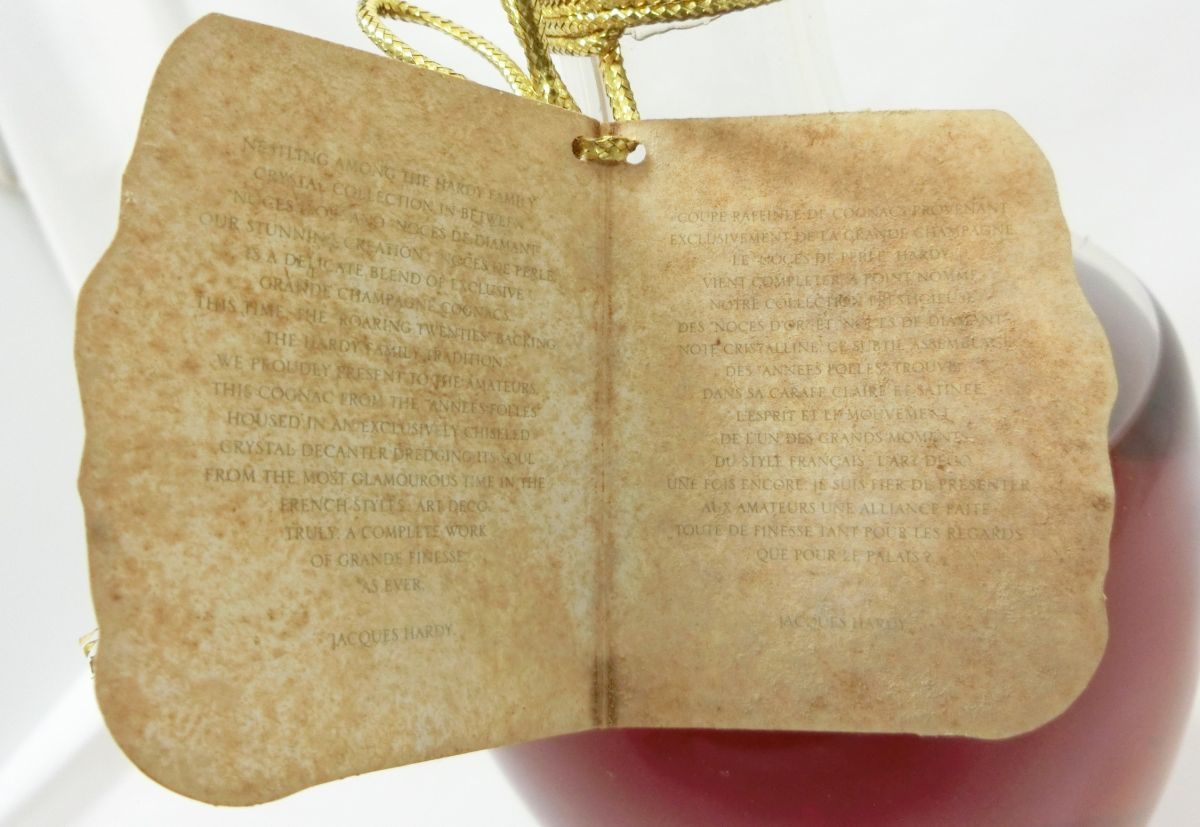 NESTLING AMONG THE HARDY FAMILY
CRYSTAL COLLECTION IN BETWEEN
"NOCES D'OR" AND "NOCES DE DIAMANT"
OUR STUNNING CREATION "NOCES DE PERLE"
IS A DELICATE BLEND OF EXCLUSIVE
GRANDE CHAMPAGNE COGNACS.
THIS TIME, THE "ROARING TWENTIES" BACKING
THE HARDY FAMILY TRADITION,
WE PROUDLY PRESENT TO THE AMATEURS,
THIS COGNAC FROM THE "ANNEES FOLLES"
HOUSED IN AN EXCLUSIVELY CHISELED
CRYSTAL DECANTER DREDGING ITS SOUL
FROM THE MOST GLAMOUROUS TIME IN THE
FRENCH STYLES: ART DECO.
TRULY, A COMPLETE WORK
OF GRANDE FINESSE.
AS EVER.
JACQUES HARDY.
COUPE RAFFINEE DE COGNACS PROVENANT
EXCLUSIVEMENT DE LA GRANDE CHAMPAGNE,
LE "NOCES DE PERLE" HARDY
VIENT COMPLETER A POINT NOMME
NOTRE COLLECTION PRESTIGIEUSE
DES "NOCES D'OR" ET "NOCES DE DIAMANT".
NOTE CRISTALLINE CE SUBTIL ASSEMBLAGE
DES "ANNEES FOLLES" TROUVE
DANS SA CARAFE CLAIRE ET SATINEE
L'ESPRIT ET LE MOUVEMENT
DE L'UN DES GRANDS MOMENTS
DU STYLE FRANÇAIS: L'ART DECO.
UNE FOIS ENCORE, JE SUIS FIER DE PRESENTER
AUX AMATEURS UNE ALLIANCE FAITE
TOUTE DE FINESSE TANT POUR LES REGARDS
QUE POUR LE PALAIS ?
JACQUES HARDY